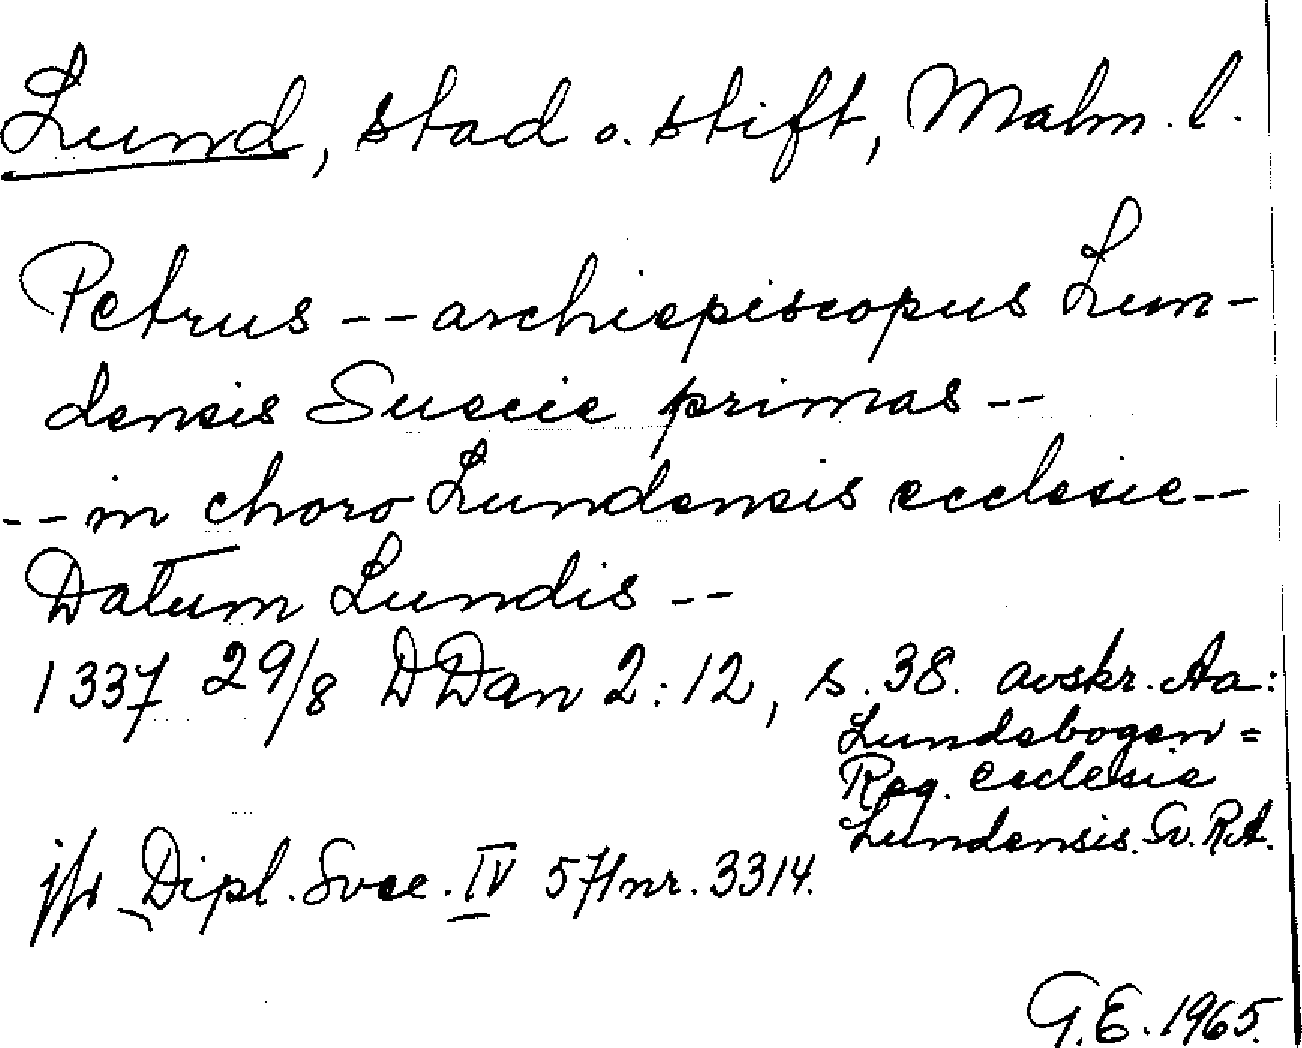 Lund, stad o. stift, Malm. l.
Petrus -- archiepiscopus Lun-
densis Suecie primas --
-- in choro Lundensis ecclesie --
Datum Lundis --
1337 29/8 DDan 2:12, s. 38. avskr. Aa:
Lundebogen =
Reg. ecclesie
Lundensis. Sv. RA.
jfr Dipl. Svec. IV 571 nr. 3314.
G.E. 1965.